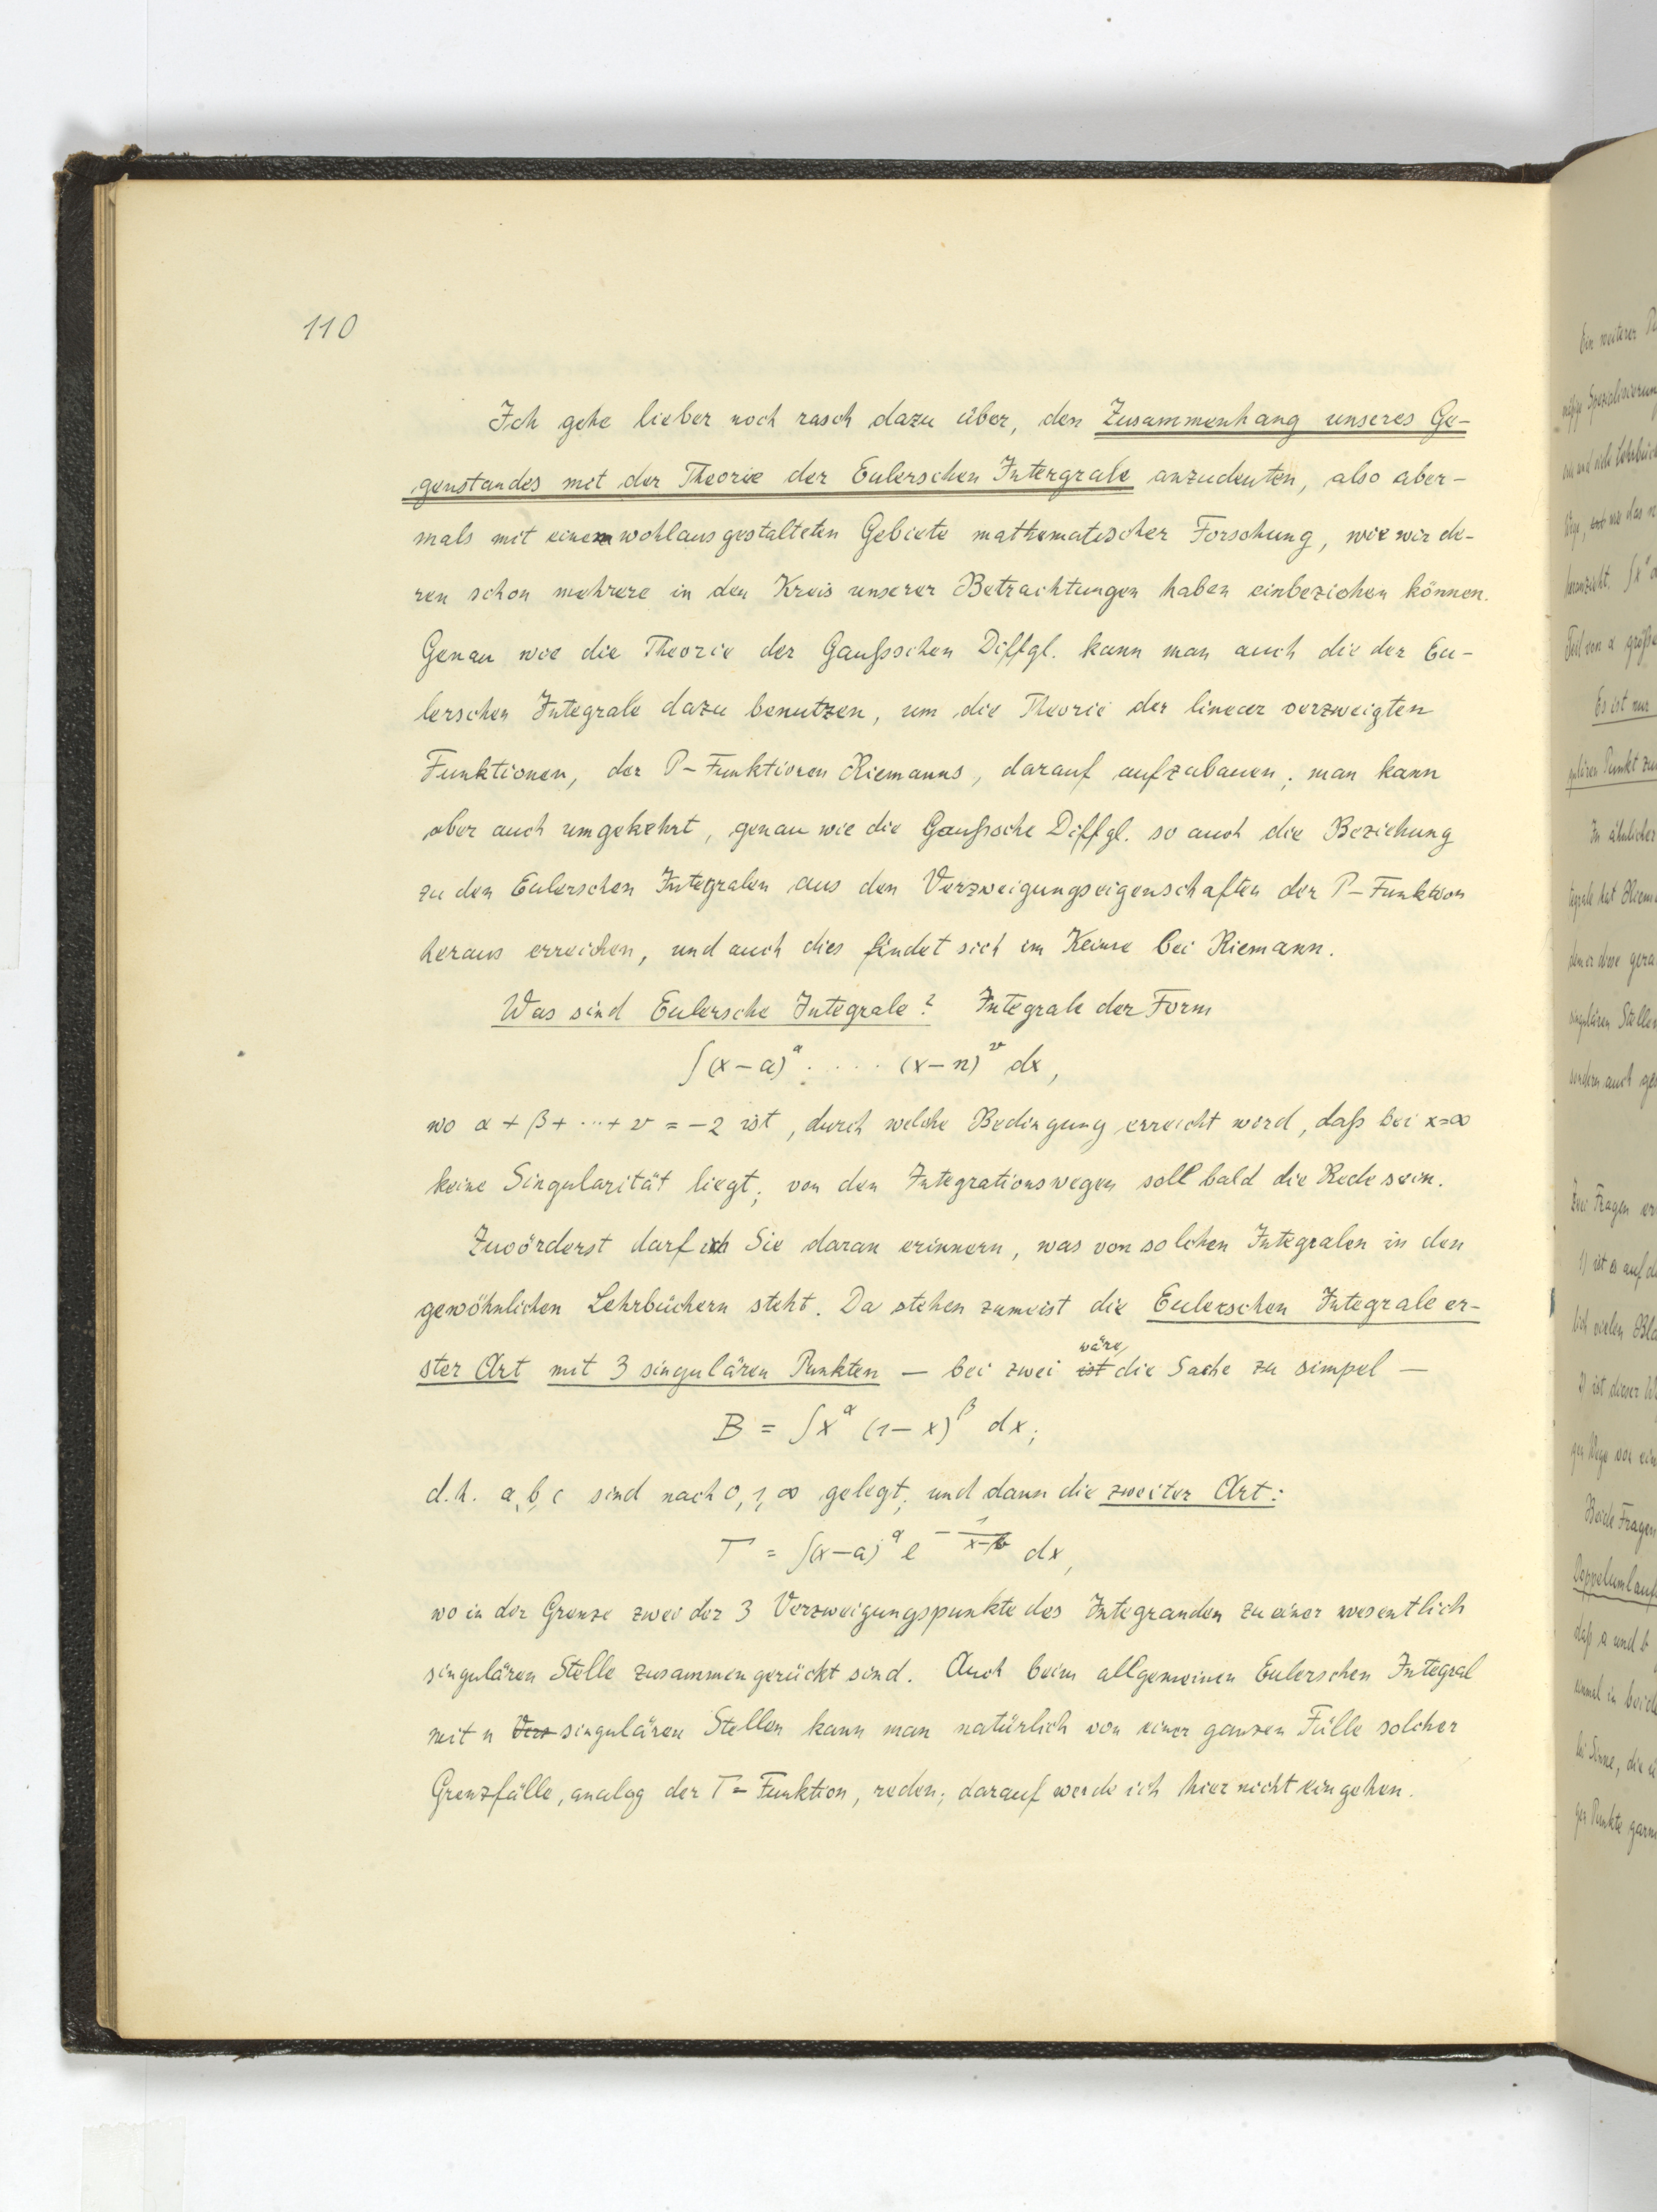 110
Ich gehe lieber noch rasch dazu über, den Zusammenhang unseres Ge-
genstandes mit der Theorie der Eulerschen Intergrale anzudeuten, also aber-
mals mit einem wohlausgestalteten Gebiete mathematischer Forschung, wie wir de-
ren schon mehrere in den Kreis unserer Betrachtungen haben einbeziehen können.
Genau wie die Theorie der Gaußschen Diffgl. kann man auch die der Eu-
lerschen Integrale dazu benutzen, um die Theorie der linear verzweigten
Funktionen, der P-Funktionen Riemanns, darauf aufzubauen; man kann
aber auch umgekehrt, genau wie die Gaußsche Diffgl. so auch die Beziehung
zu den Eulerschen Integralen aus den Verzweigungseigenschaften der P-Funktion
heraus erreichen, und auch dies findet sich im Keime bei Riemann.
Was sind Eulersche Integrale? Integrale der Form
∫(x-a)^α · · · · · (x-n)^ν dx,
wo α + β + ··· + ν = -2 ist, durch welche Bedingung erreicht wird, daß bei x=∞
keine Singularität liegt; von den Integrationswegen soll bald die Rede sein.
Zuvörderst darf ich Sie daran erinnern, was von solchen Integralen in den
gewöhnlichen Lehrbüchern steht. Da stehen zumeist die Eulerschen Integrale er-
ster Art mit 3 singulären Punkten — bei zwei ist wäre die Sache zu simpel —
B = ∫x^α (1-x)^β dx;
d.h. a, b, c sind nach 0, 1, ∞ gelegt; und dann die zweiter Art:
Γ = ∫(x-a)^α e^{-1/(x-b)} dx,
wo in der Grenze zwei der 3 Verzweigungspunkte des Integranden zu einer wesentlich
singulären Stelle zusammengerückt sind. Auch beim allgemeinen Eulerschen Integral
mit n Verz singulären Stellen kann man natürlich von einer ganzen Fülle solcher
Grenzfälle, analog der Γ-Funktion, reden; darauf werde ich hier nicht eingehen.